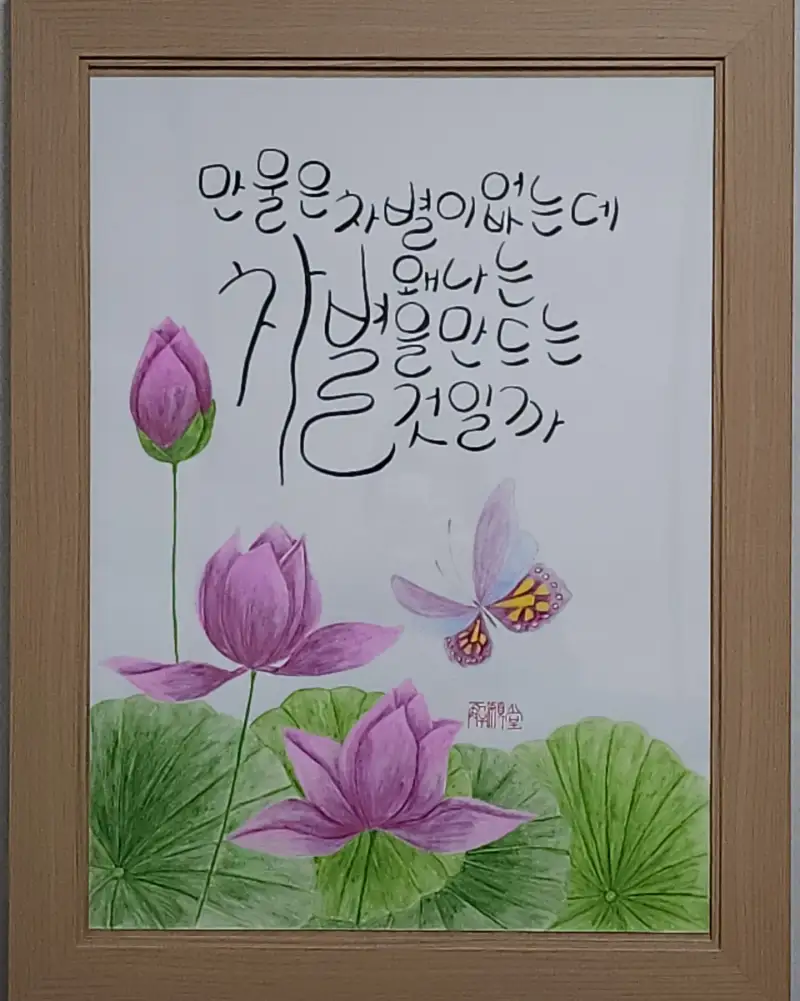 만물은 차별이 없는데
왜 나는
차별을 만드는
것일까